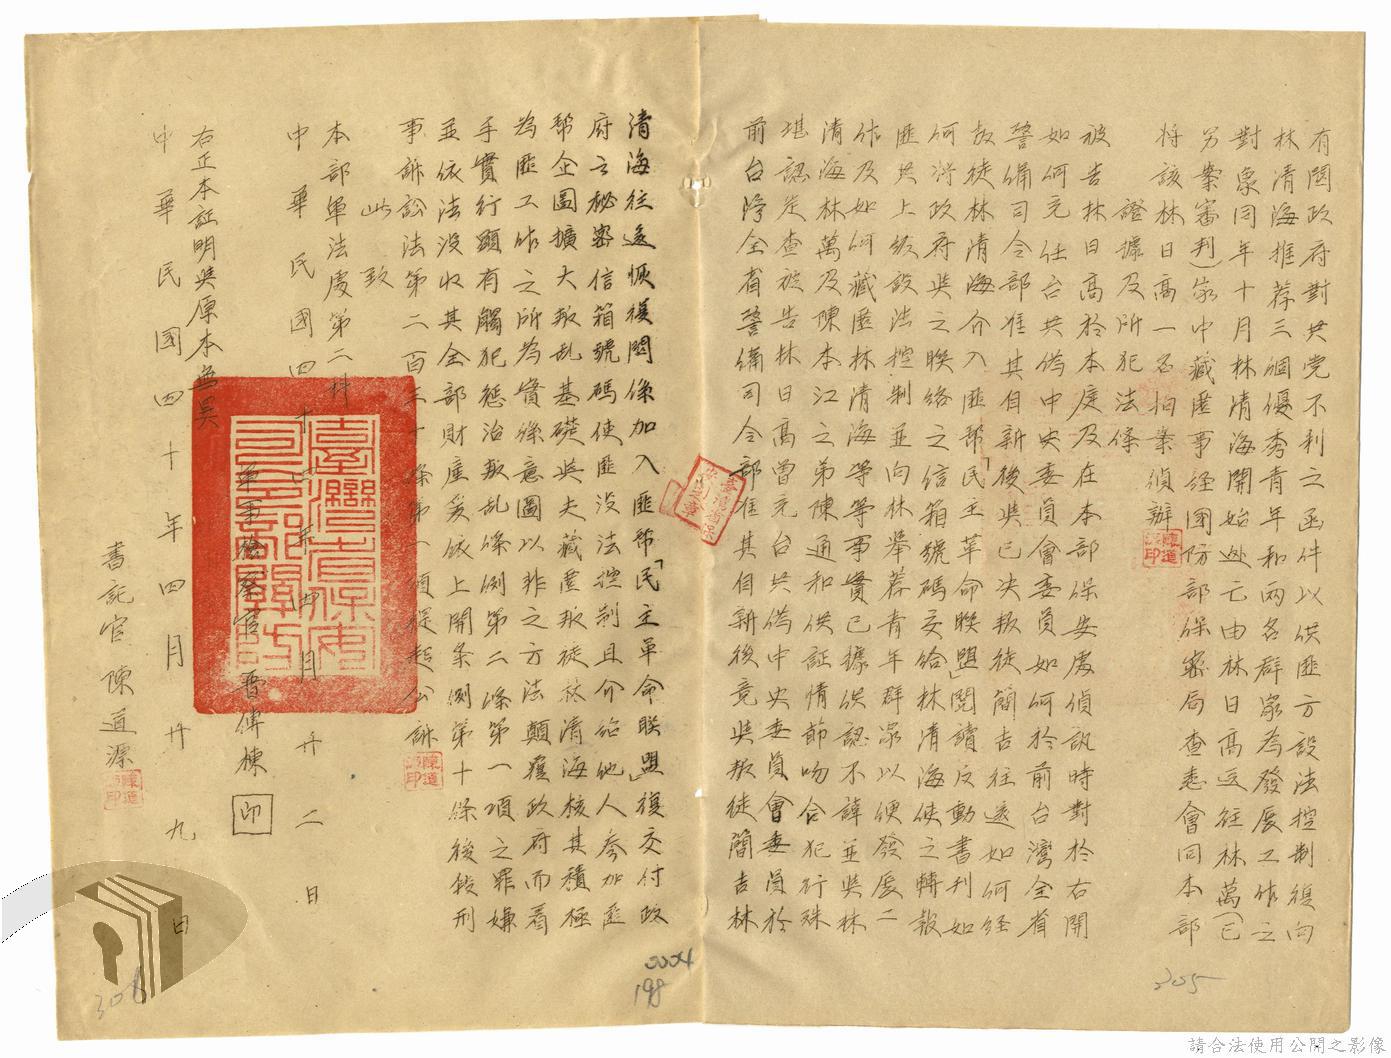 有關政府對共党不利之函件以供匪方設法控制復向
林清海推荐三個優秀青年和兩名群众為發展工作之
對象同年十月林清海開始逃亡由林日高送往林萬(已
另案審判)家中藏匿事经國防部保密局查悉會同本部
將該林日高一名拍案偵辦
證據及所犯法條
被告林日高於本庭及在本部保安處偵訊時對於右開
如何充任台共偽中央委員會委員如何於前台灣全省
警備司令部准其自新後與已决叛徒簡吉往返如何经
叛徒林清海介入匪帮「民主革命聯盟」閱讀反動書刊如
何將政府與之聯絡之信箱號碼交給林清海使之轉報
匪共上級設法控制並向林舉荐青年群众以便發展工
作及如何藏匿林清海等等事實已據供認不諱並與林
清海林萬及陳本江之弟陳通和供証情節吻合犯行殊
堪認定查被告林日高曾充台共偽中央委員會委員於
前台灣全省警備司令部准其自新後竟與叛徒簡吉林
清海往返恢復關係加入匪帮「民主革命聯盟」復交付政
府之秘密信箱號碼使匪設法控制且介紹他人参加匪
帮企圖擴大叛乱基礎與夫藏匿叛徒林清海核其積極
為匪工作之所為實係意圖以非之方法顛覆政府而着
手實行顯有觸犯懲治叛乱條例第二條第一項之罪嫌
並依法没收其全部財產爰依上開条例第十條後段刑
事訴訟法第二百三十條第一項提起公訴
此致
本部軍法處第二科
中華民國四十四年四月廿二日
軍事檢察官曹傳棟 印
右正本証明與原本無異
中華民國四十年四月廿九日
書記官陳道源
陳道源印
陳道源印
陳道源印
0004
198
305
請合法使用公開之影像